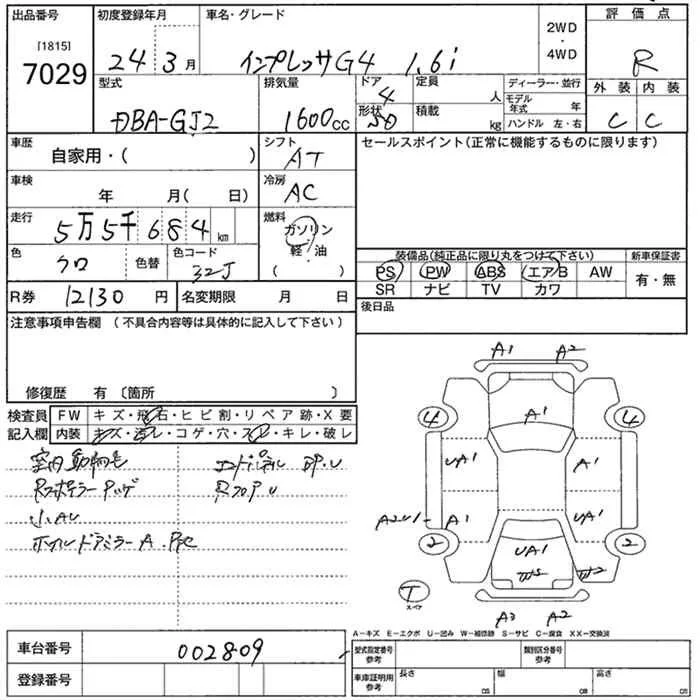 出品番号 初度登録年月 車名・グレード 2WD・4WD 評価点
[1815]
7029
24年3月 インプレッサG4 1.6i R
型式 排気量 ドア 定員 人 ディーラー・並行 外装 内装
DBA-GJ2 1600cc 4
形状 積載 kg モデル年式 年
SD ハンドル 左・右 C C
車歴 シフト セールスポイント(正常に機能するものに限ります)
自家用・( ) AT
車検 冷房
年 月( 日) AC
走行 燃料
5万5千684km ガソリン
軽・油
( )
色 色替 色コード 装備品(純正品に限り丸をつけて下さい) 新車保証書
クロ 32J PS PW ABS エアB AW 有・無
SR ナビ TV カワ
R券 12130円 名変期限 月 日 後日品
注意事項申告欄(不具合内容等は具体的に記入して下さい)
修復歴 有〔箇所 〕
検査員 FW キズ・飛石・ヒビ割・リペア跡・X要
記入欄 内装 キズ・汚レ・コゲ・穴・スレ・キレ・破レ
室内動物毛
小AU
ホイル ドアミラーA
A1 A2
A1
4 4
UA1 A1
A1 UA1
2 2
UA1
T
スペア
A2 A2
A−キズ E−エクボ U−凹み W−補修跡 S−サビ C−腐食 XX−交換済
車台番号 002809
登録番号
型式指定番号 参考 類別区分番号 参考
車庫証明用 参考 長さ cm 幅 cm 高さ cm